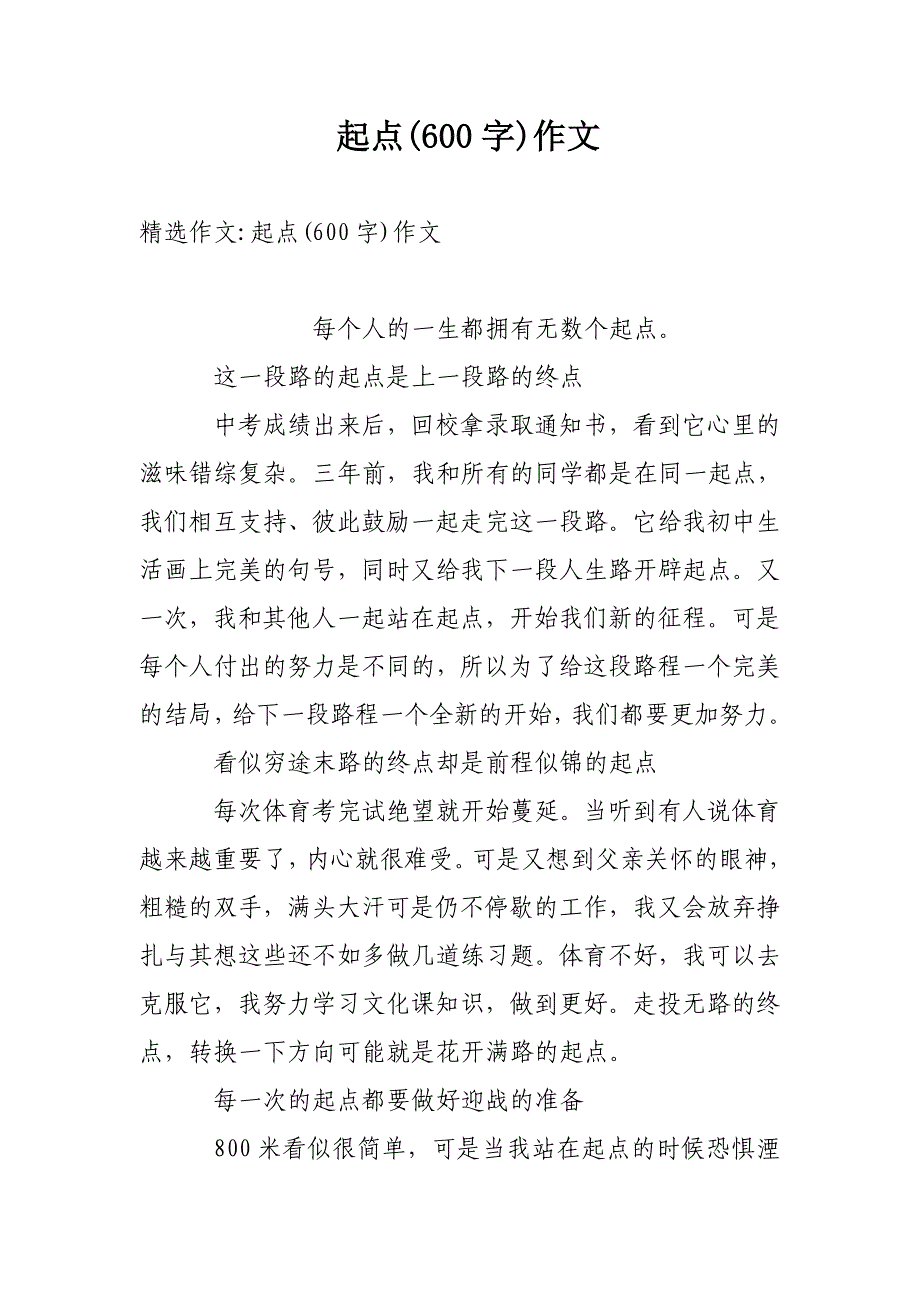 起点(600字)作文
精选作文:起点(600字)作文
每个人的一生都拥有无数个起点。
这一段路的起点是上一段路的终点
中考成绩出来后，回校拿录取通知书，看到它心里的
滋味错综复杂。三年前，我和所有的同学都是在同一起点，
我们相互支持、彼此鼓励一起走完这一段路。它给我初中生
活画上完美的句号，同时又给我下一段人生路开辟起点。又
一次，我和其他人一起站在起点，开始我们新的征程。可是
每个人付出的努力是不同的，所以为了给这段路程一个完美
的结局，给下一段路程一个全新的开始，我们都要更加努力。
看似穷途末路的终点却是前程似锦的起点
每次体育考完试绝望就开始蔓延。当听到有人说体育
越来越重要了，内心就很难受。可是又想到父亲关怀的眼神，
粗糙的双手，满头大汗可是仍不停歇的工作，我又会放弃挣
扎与其想这些还不如多做几道练习题。体育不好，我可以去
克服它，我努力学习文化课知识，做到更好。走投无路的终
点，转换一下方向可能就是花开满路的起点。
每一次的起点都要做好迎战的准备
800米看似很简单，可是当我站在起点的时候恐惧湮